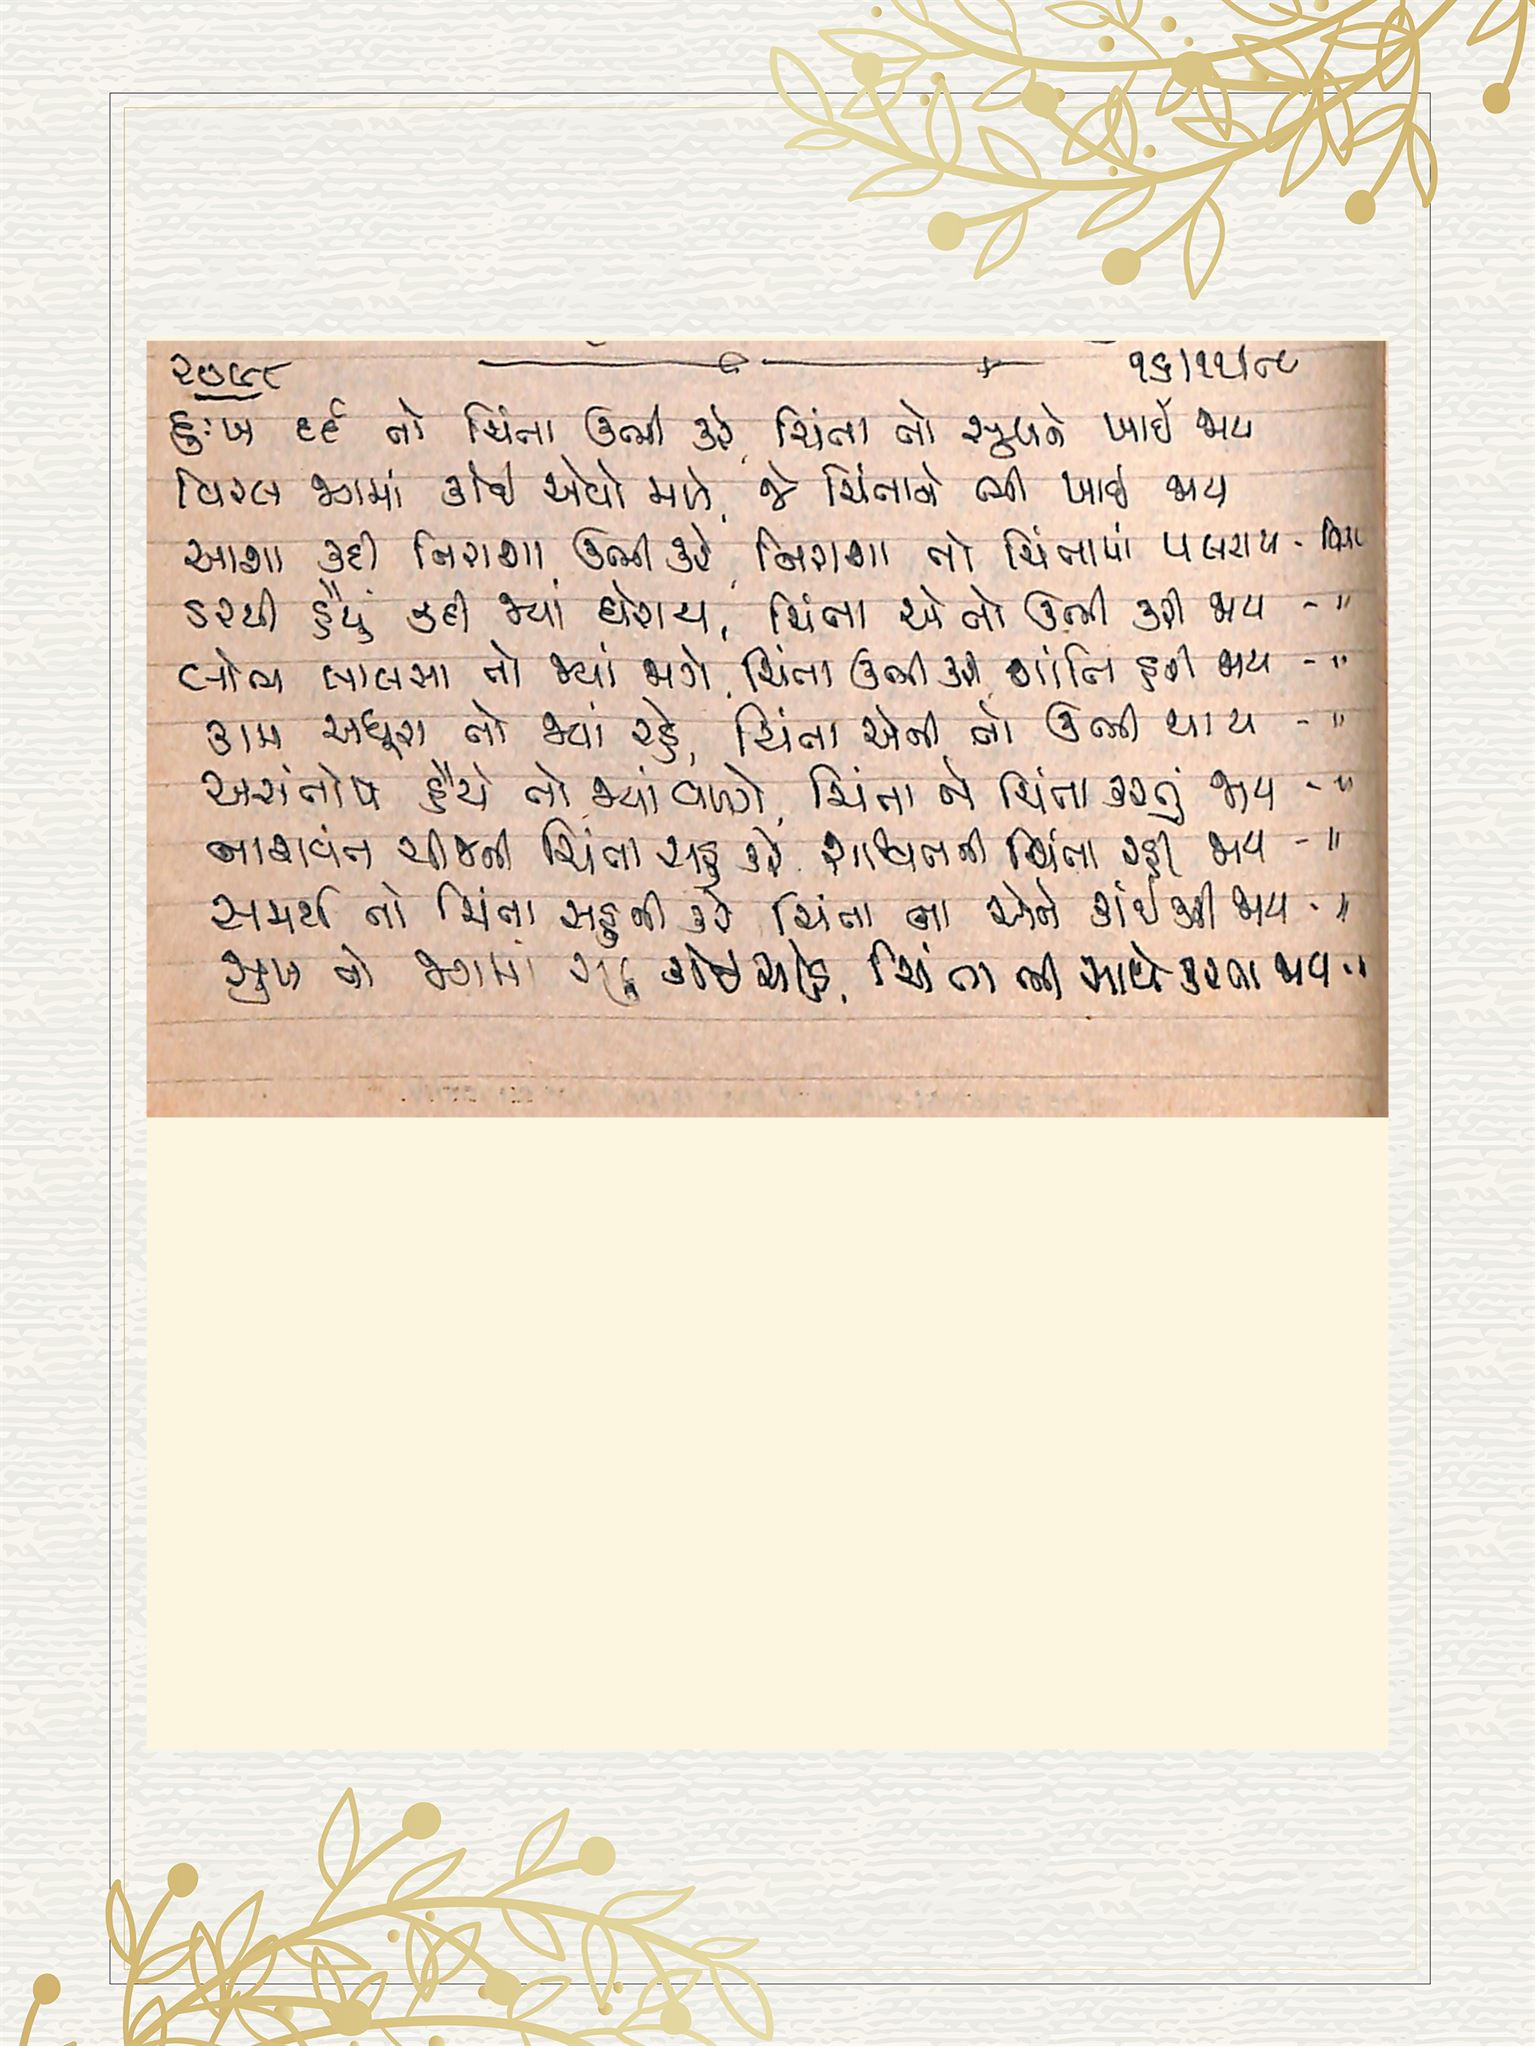 ૨૭૯૮ ૧૬/૧૧/૮૯
દુઃખ દર્દ તો ચિંતા ઉભી કરે, ચિંતા તો સુખને ખાઈ જાય
વિરલ જગમાં કોઈ એવો મળે, જે ચિંતાને ભી ખાઈ જાય
આશા કદી નિરાશા ઉભી કરે, નિરાશા તો ચિંતામાં પલટાય -
ડરથી હૈયું કદી જ્યાં ઘેરાય, ચિંતા એ તો ઉભી કરી જાય - "
લોભ લાલસા તો જ્યાં જાગે, ચિંતા ઉભી કરી શાંતિ હરી જાય - "
કામ અધૂરા તો જ્યાં રહે, ચિંતા એની તો ઉભી થાય - "
અસંતોષ હૈયે તો જ્યાં વળગે, ચિંતા ને ચિંતા કરતું જાય - "
નાશવંત ચીજની ચિંતા સહુ કરે, શાશ્વતની ચિંતા રહી જાય - "
સમર્થ તો ચિંતા સહુની કરે, ચિંતા ના એને કાંઈ કરી જાય - "
સુખ તો જગમાં સહુ કોઈ ચાહે, ચિંતા ભી સાથે કરતા જાય - "